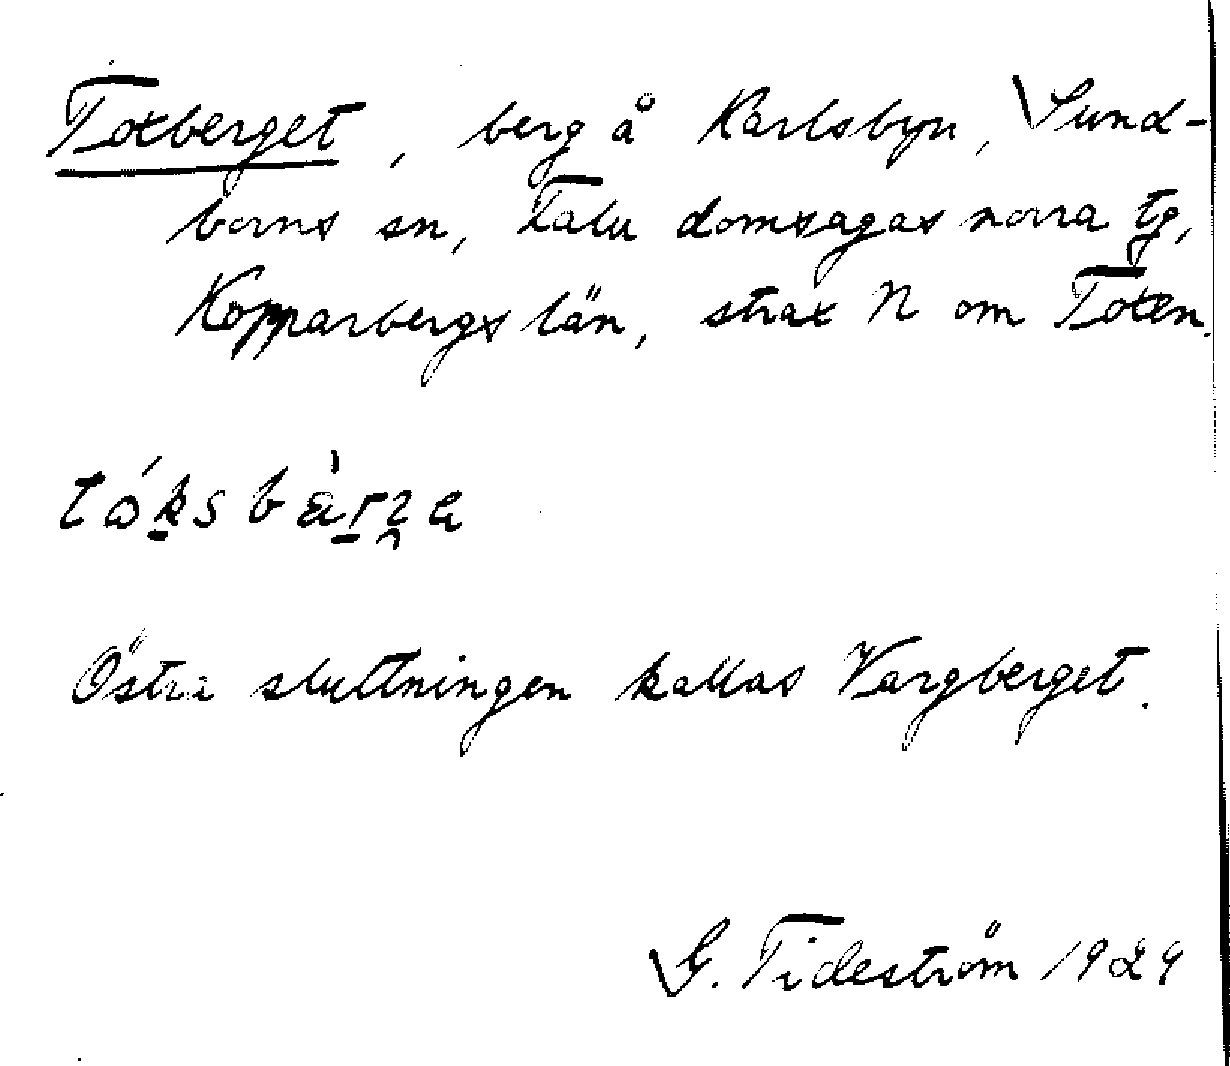 Toxberget, berg å Karlsbyn, Sund-
borns sn, Falu domsagas norra tg,
Kopparbergs län, strax N om Toxen.
Östra sluttningen kallas Vargberget.
G. Tideström 1929